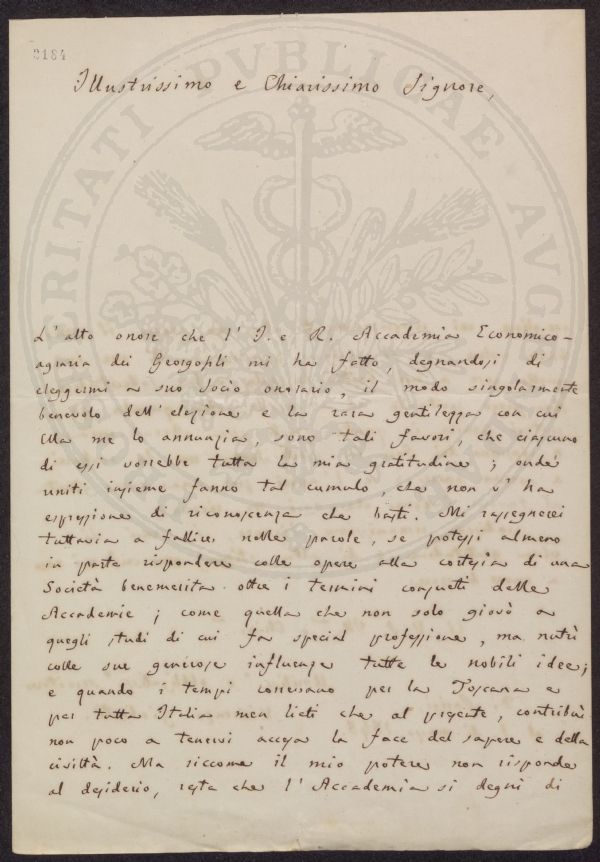 2184
Illustrissimo e Chiarissimo Signore,
L'alto onore che l' I. e R. Accademia Economico-
agraria dei Georgofili mi ha fatto, degnandosi di
eleggermi a suo Socio onorario, il modo singolarmente
benevolo dell'elezione e la rara gentilezza con cui
Ella me lo annunzia, sono tali favori, che ciascuno
di essi vorrebbe tutta la mia gratitudine; onde
uniti insieme fanno tal cumulo, che non v'ha
espressione di riconoscenza che basti. Mi rassegnerei
tuttavia a fallire nelle parole, se potessi almeno
in parte rispondere colle opere alla cortesia di una
Società benemerita oltre i termini consueti delle
Accademie; come quella che non solo giovò a
quegli studi di cui fa special professione, ma nutrì
colle sue generose influenze tutte le nobili idee;
e quando i tempi correvano per la Toscana e
per tutta Italia men lieti che al presente, contribuì
non poco a tenervi accesa la face del sapere e della
civiltà. Ma siccome il mio potere non risponde
al desiderio, resta che l'Accademia si degni di
VERITATI PVBLICAE AVG